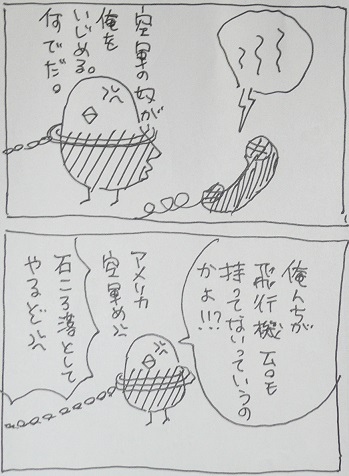 空軍の奴が
俺を
いじめる。
何でだ。
俺んちが
飛行機一台も
持ってないっていうの
かよ!!?
アメリカ
空軍め
石ころ落として
やるぞ